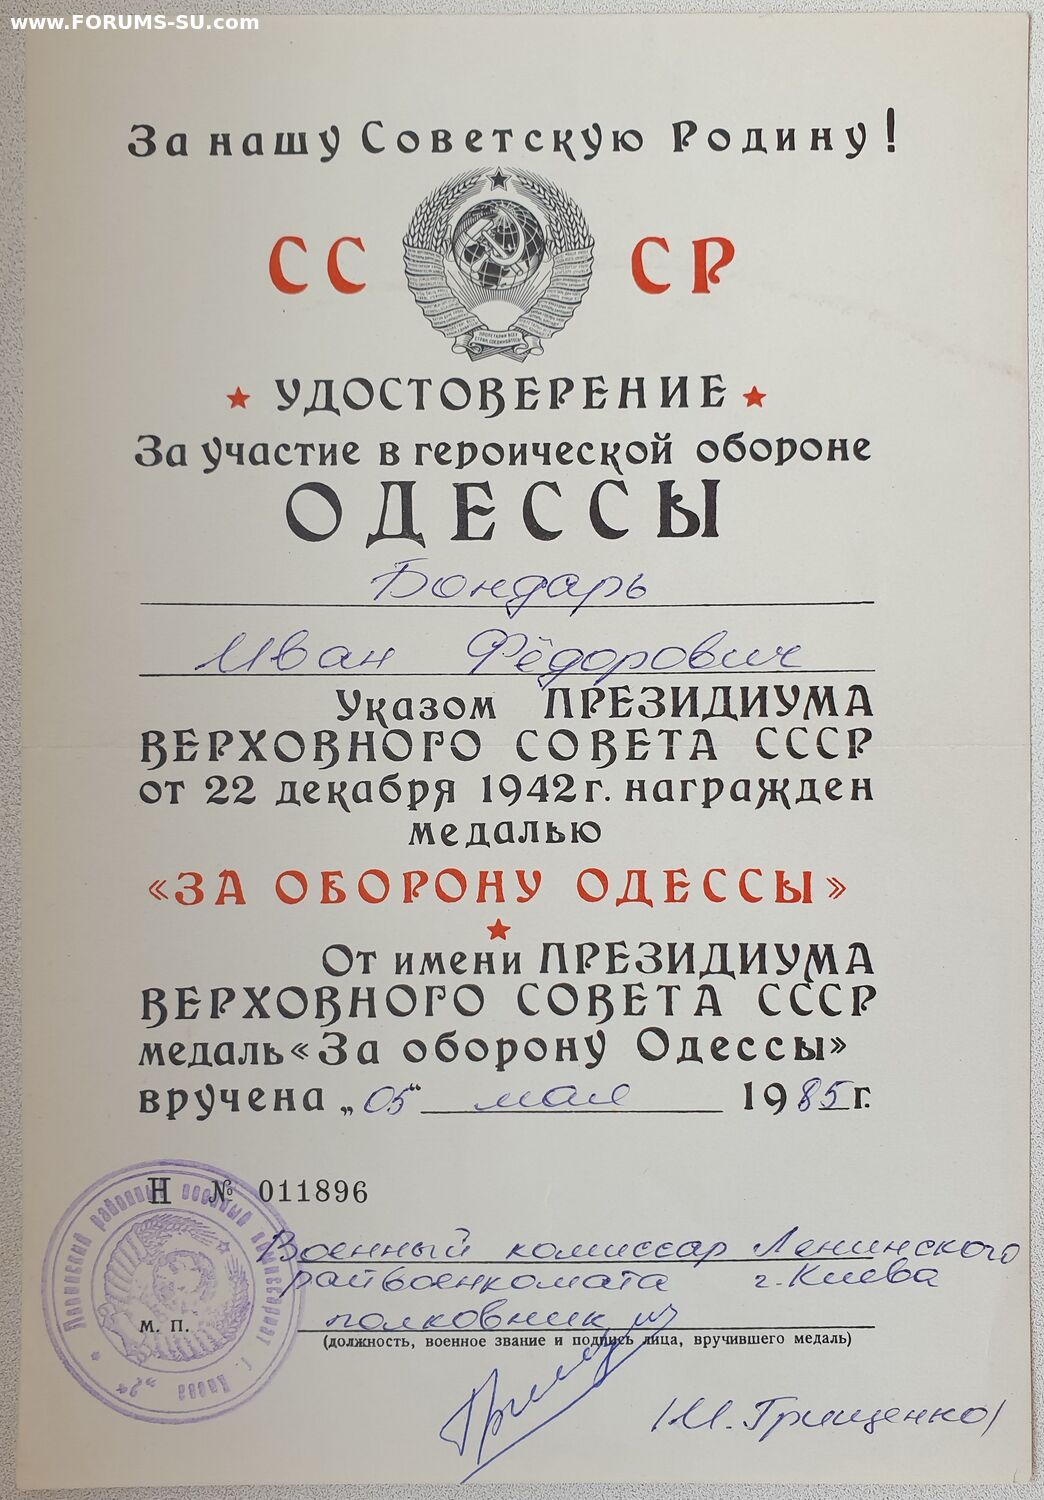 www.FORUMS-SU.com
За нашу Советскую Родину!
СС СР
ПРОЛЕТАРИИ ВСЕХ
СТРАН, СОЕДИНЯЙТЕСЬ!
УДОСТОВЕРЕНИЕ
За участие в героической обороне
ОДЕССЫ
Бондарь
Иван Фёдорович
Указом ПРЕЗИДИУМА
ВЕРХОВНОГО СОВЕТА СССР
от 22 декабря 1942 г. награжден
медалью
«ЗА ОБОРОНУ ОДЕССЫ»
От имени ПРЕЗИДИУМА
ВЕРХОВНОГО СОВЕТА СССР
медаль «За оборону Одессы»
вручена „05“ мая 1985 г.
Н № 011896
Ленинский районный военный комиссариат г. Киева
Военный комиссар Ленинского
райвоенкомата г. Киева
полковник
М. П.
(должность, военное звание и подпись лица, вручившего медаль)
/М. Грищенко/